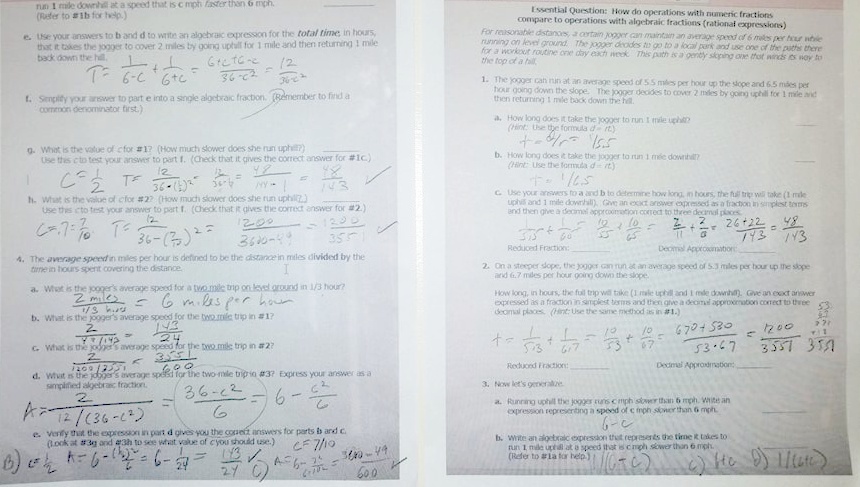 run 1 mile downhill at a speed that is c mph faster than 6 mph.
(Refer to #1b for help.)
e. Use your answers to b and d to write an algebraic expression for the total time, in hours,
that it takes the jogger to cover 2 miles by going uphill for 1 mile and then returning 1 mile
back down the hill.
T = 1/(6-c) + 1/(6+c) = (6+c+6-c)/(36-c²) = 12/(36-c²)
f. Simplify your answer to part e into a single algebraic fraction. (Remember to find a
common denominator first.)
g. What is the value of c for #1? (How much slower does she run uphill?)
Use this c to test your answer to part f. (Check that it gives the correct answer for #1c.)
C = 1/2 T = 12/(36-(1/2)²) = 12/(36-1/4) = 48/(144-1) = 48/143 ✓
h. What is the value of c for #2? (How much slower does she run uphill?)
Use this c to test your answer to part f. (Check that it gives the correct answer for #2.)
C = .7 = 7/10 T = 12/(36-(7/10)²) = 1200/(3600-49) = 1200/3551 ✓
4. The average speed in miles per hour is defined to be the distance in miles divided by the
time in hours spent covering the distance.
a. What is the jogger's average speed for a two mile trip on level ground in 1/3 hour?
2 miles/(1/3 hour) = 6 miles per hour
b. What is the jogger's average speed for the two mile trip in #1?
2/(48/143) = 143/24
c. What is the jogger's average speed for the two mile trip in #2?
2/(1200/3551) = 3551/600
d. What is the jogger's average speed for the two-mile trip in #3? Express your answer as a
simplified algebraic fraction.
A = 2/(12/(36-c²)) = (36-c²)/6 = 6 - c²/6
e. Verify that the expression in part d gives you the correct answers for parts b and c.
(Look at #3g and #3h to see what value of c you should use.) C = 7/10
B) c = 1/2 A = 6 - (1/2)²/6 = 6 - 1/24 = 143/24 ✓ C) A = 6 - = 3600-49/600 ✓
Essential Question: How do operations with numeric fractions
compare to operations with algebraic fractions (rational expressions)
For reasonable distances, a certain jogger can maintain an average speed of 6 miles per hour while
running on level ground. The jogger decides to go to a local park and use one of the paths there
for a workout routine one day each week. This path is a gently sloping one that winds its way to
the top of a hill.
1. The jogger can run at an average speed of 5.5 miles per hour up the slope and 6.5 miles per
hour going down the slope. The jogger decides to cover 2 miles by going uphill for 1 mile and
then returning 1 mile back down the hill.
a. How long does it take the jogger to run 1 mile uphill?
(Hint: Use the formula d = rt.)
t = d/r = 1/5.5
b. How long does it take the jogger to run 1 mile downhill?
(Hint: Use the formula d = rt.)
t = 1/6.5
c. Use your answers to a and b to determine how long, in hours, the full trip will take (1 mile
uphill and 1 mile downhill). Give an exact answer expressed as a fraction in simplest terms
and then give a decimal approximation correct to three decimal places.
1/5.5 + = 10/55 + 10/65 = 2/11 + = 26+22/143 = 48/143
Reduced Fraction: Decimal Approximation:
2. On a steeper slope, the jogger can run at an average speed of 5.3 miles per hour up the slope
and 6.7 miles per hour going down the slope.
How long, in hours, the full trip will take (1 mile uphill and 1 mile downhill). Give an exact answer
expressed as a fraction in simplest terms and then give a decimal approximation correct to three
decimal places. (Hint: Use the same method as in #1.)
t = 1/5.3 + 1/6.7 = 10/53 + 10/67 = 670+530/53·67 = 1200/3551 3551
Reduced Fraction: Decimal Approximation:
3. Now let's generalize.
a. Running uphill the jogger runs c mph slower than 6 mph. Write an
expression representing a speed of c mph slower than 6 mph.
6-c
b. Write an algebraic expression that represents the time it takes to
run 1 mile uphill at a speed that is c mph slower than 6 mph.
(Refer to #1a for help.) 1/(6-c) c) d) 1/(6+c)